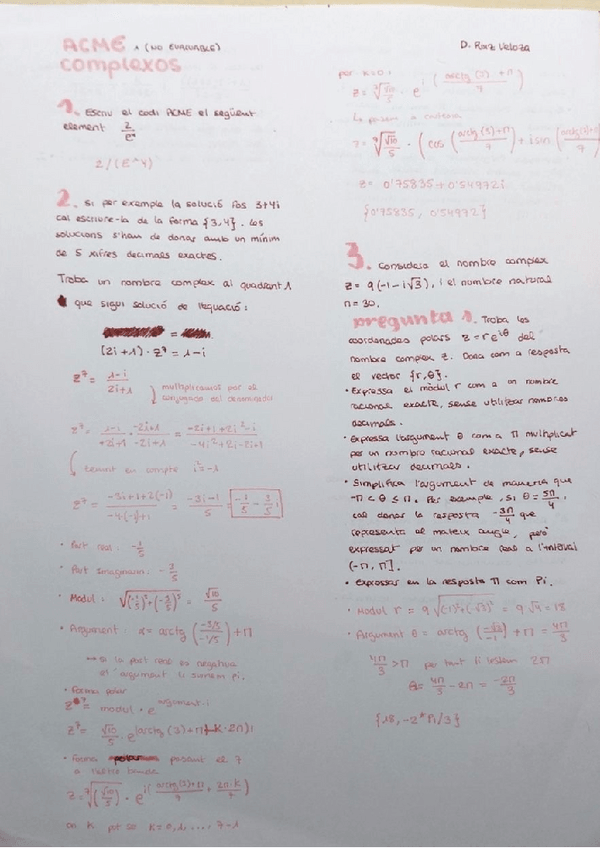 ACME 1 (NO EVALUABLE)
complexos
1. Escriu el codi ACME el següent
element 2/e⁴
2/(E^4)
2. Si per exemple la solució fos 3+4i
cal escriure-la de la forma {3,4}. Les
solucions s'han de donar amb un mínim
de 5 xifres decimals exactes.
Troba un nombre complex al quadrant 1
que sigui solució de l'equació:
(2i+1) · z⁷ = 1-i
z⁷ = (1-i)/(2i+1)
multipliquem per el
conjugat del denominador
z⁷ = (1-i)/(2i+1) · (-2i+1)/(-2i+1) = (-2i+1+2i²-i)/(-4i²+2i-2i+1)
tenint en compte i²=-1
z⁷ = (-3i+1+2(-1))/(-4·(-1)+1) = (-3i-1)/5 = -1/5 - 3/5 i
· Part real: -1/5
· Part Imaginaria: -3/5
· Mòdul: √((-1/5)²+(-3/5)²) = √10/5
· Argument: α = arctg((-3/5)/(-1/5)) + π
si la part real es negativa
l'argument li sumem Pi.
· Forma polar
z⁷ = modul · e^(argument·i)
z⁷ = √10/5 · e^(arctg(3)+π+K·2π)i
· Forma polar passant el 7
a l'altre banda
z = ⁷√(√10/5) · e^(i((arctg(3)+π)/7 + 2π·K/7))
on K pot ser K=0,1,...,7-1
D. Ruiz Veloza
per K=0:
z = ⁷√(√10/5) · e^(i((arctg(3)+π)/7))
Lo passem a
z = ⁷√(√10/5) · (cos((arctg(3)+π)/7) + i sin((arctg(3)+π)/7)
z = 0'75835 + 0'54972i
{0'75835, 0'54972}
3. Considera el nombre complex
z = 9(-1-i√3), i el nombre natural
n=30.
pregunta 1. Troba les
coordenades polars z = r e^(iθ) del
nombre complex z. Dona com a resposta
el vector {r,θ}.
· Expressa el mòdul r com a un nombre
racional exacte, sense utilitzar nombres
decimals.
· Expressa l'argument θ com a π multiplicat
per un nombre racional exacte, sense
utilitzar decimals.
· Simplifica l'argument de manera que
-π < θ ≤ π. Per exemple, si θ = 5π/4,
cal donar la resposta -3π/4 que
representa el mateix angle, però
expressat per un nombre real a l'interval
(-π, π].
· Expressar en la resposta π com Pi.
· Modul r = 9√((-1)²+(-√3)²) = 9√4 = 18
· Argument θ = arctg(-√3/-1) + π = 4π/3
4π/3 > π per tant li restem 2π
θ = 4π/3 - 2π = -2π/3
{18, -2*Pi/3}